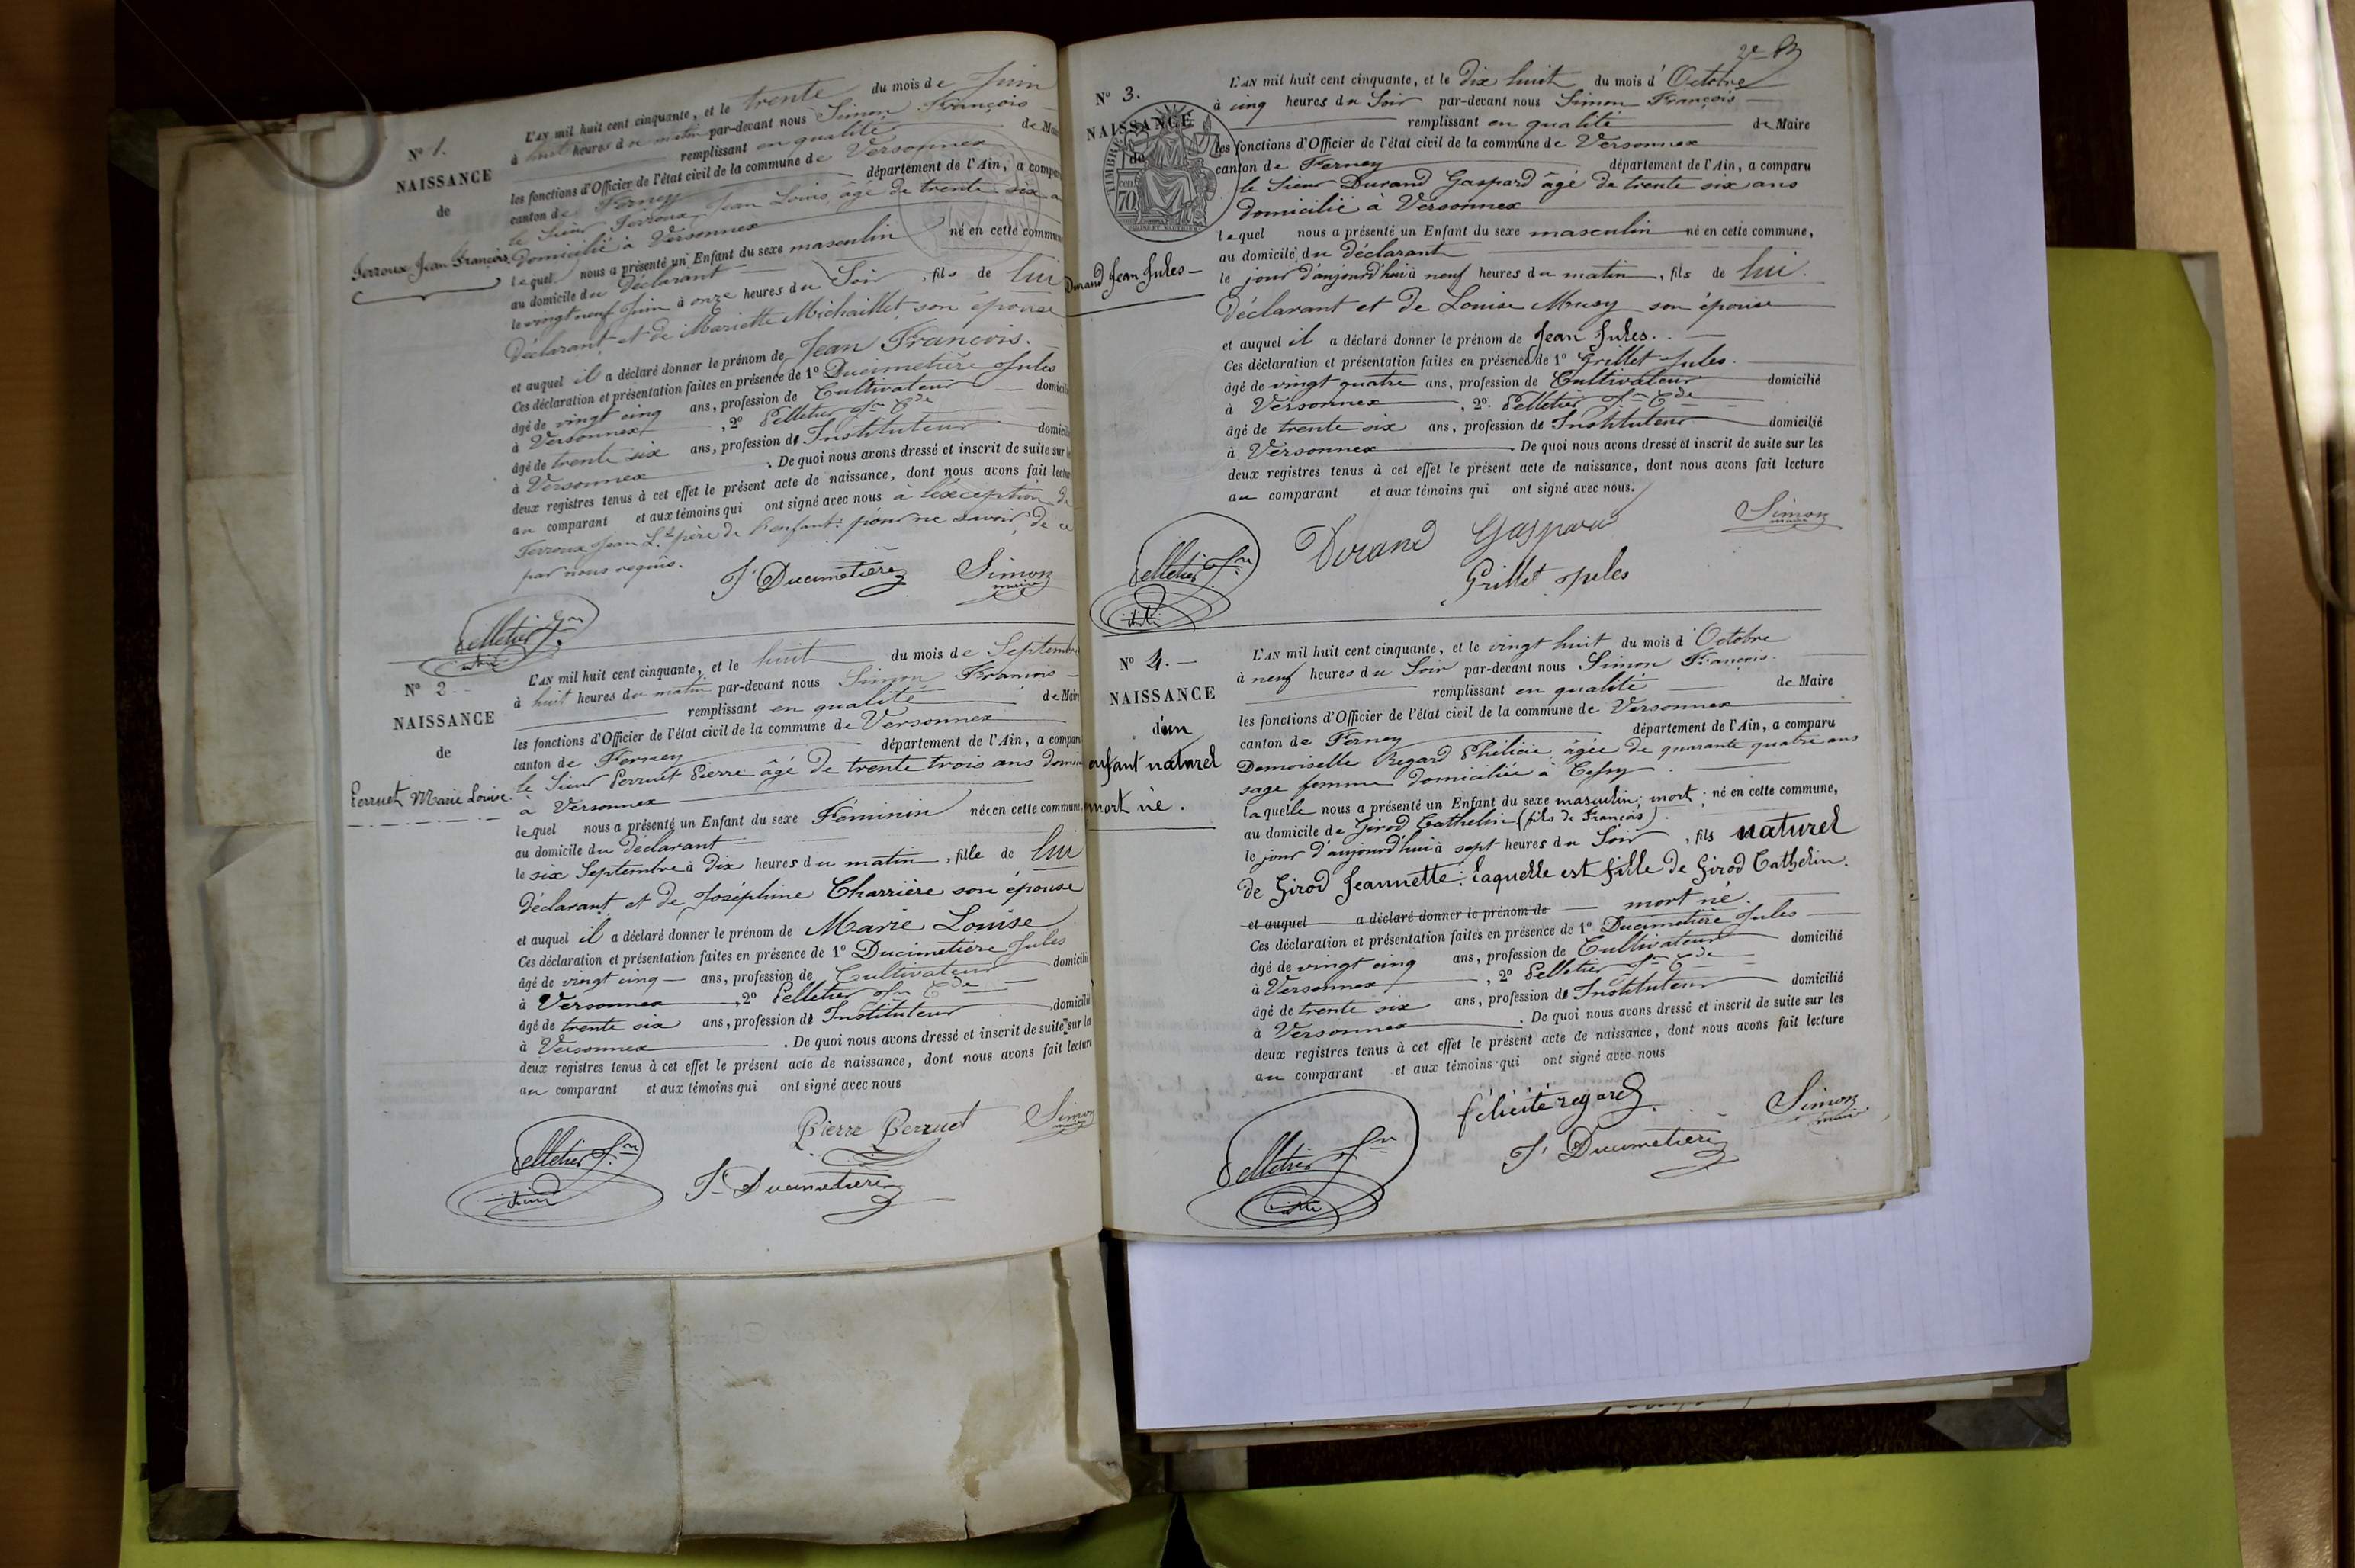 N° 1.
NAISSANCE
de
Terroux Jean François
L'AN mil huit cent cinquante, et le trente du mois de Juin
à huit heures du matin par-devant nous Simon François
remplissant en qualité de Mai
les fonctions d'Officier de l'état civil de la commune de Versonnex
canton de Ferney département de l'Ain, a compar
le Sieur Terroux Jean Louis, âgé de trente six a
Domicilié à Versonnex
lequel nous a présenté un Enfant du sexe masculin né en cette commun
au domicile du Déclarant
le vingt neuf Juin à onze heures du Soir, fils de lui
Déclarant et de Mariette Michaillet, son épouse
et auquel il a déclaré donner le prénom de Jean François.
Ces déclaration et présentation faites en présence de 1° Ducimetière Jules
âgé de vingt cinq ans, profession de Cultivateur domicil
à Versonnex, 2° Pelletier Jn Cde
âgé de trente six ans, profession de Instituteur domicil
à Versonnex. De quoi nous avons dressé et inscrit de suite sur l
deux registres tenus à cet effet le présent acte de naissance, dont nous avons fait lectur
au comparant et aux témoins qui ont signé avec nous à l'exception de
Terroux Jean Ls père de l'enfant: pour ne savoir, de ce
par nous requis.
J. Ducimetière
Simon
maire
Pelletier Jn
N° 2.
NAISSANCE
de
Perruet Marie Louise.
L'AN mil huit cent cinquante, et le huit du mois de Septembr
à huit heures du matin par-devant nous Simon François
remplissant en qualité de Maire
les fonctions d'Officier de l'état civil de la commune de Versonnex
canton de Ferney département de l'Ain, a compar
le Sieur Perruet Pierre âgé de trente trois ans domici
à Versonnex
lequel nous a présenté un Enfant du sexe Féminin née en cette commune,
au domicile du déclarant
le six Septembre à dix heures du matin, fille de lui
déclarant et de Joséphine Charrière son épouse
et auquel il a déclaré donner le prénom de Marie Louise
Ces déclaration et présentation faites en présence de 1° Ducimetière Jules
âgé de vingt cinq ans, profession de Cultivateur domicili
à Versonnex, 2° Pelletier Jn Cde
âgé de trente six ans, profession de Instituteur domicilié
à Versonnex. De quoi nous avons dressé et inscrit de suite sur les
deux registres tenus à cet effet le présent acte de naissance, dont nous avons fait lecture
au comparant et aux témoins qui ont signé avec nous
Pierre Perruet
Simon
maire
Pelletier Jn
J. Ducimetière
2e
N° 3.
NAISSANCE
de
TIMBRE
70
Durand Jean Jules
L'AN mil huit cent cinquante, et le dix huit du mois d'Octobre
à cinq heures du Soir par-devant nous Simon François
remplissant en qualité de Maire
les fonctions d'Officier de l'état civil de la commune de Versonnex
canton de Ferney département de l'Ain, a comparu
le Sieur Durand Gaspard âgé de trente six ans
domicilié à Versonnex
lequel nous a présenté un Enfant du sexe masculin né en cette commune,
au domicile du déclarant
le jour d'aujourd'hui à neuf heures du matin, fils de lui
déclarant et de Louise Musy son épouse
et auquel il a déclaré donner le prénom de Jean Jules.
Ces déclaration et présentation faites en présence de 1° Grillet Jules.
âgé de vingt quatre ans, profession de Cultivateur domicilié
à Versonnex, 2° Pelletier Jn Cde
âgé de trente six ans, profession de Instituteur domicilié
à Versonnex. De quoi nous avons dressé et inscrit de suite sur les
deux registres tenus à cet effet le présent acte de naissance, dont nous avons fait lecture
au comparant et aux témoins qui ont signé avec nous.
Pelletier Jn
Durand Gaspard
Simon
maire
Grillet Jules
N° 4.
NAISSANCE
d'un
enfant naturel
mort né.
L'AN mil huit cent cinquante, et le vingt huit du mois d'Octobre
à neuf heures du Soir par-devant nous Simon François.
remplissant en qualité de Maire
les fonctions d'Officier de l'état civil de la commune de Versonnex
canton de Ferney département de l'Ain, a comparu
Demoiselle Regard Phélicie âgée de quarante quatre ans
sage femme domiciliée à Cessy
laquelle nous a présenté un Enfant du sexe masculin; mort; né en cette commune,
au domicile de Girod Cathelin (fils de François).
le jour d'aujourd'hui à sept heures du Soir, fils naturel
de Girod Jeannette: laquelle est fille de Girod Cathelin.
et auquel a déclaré donner le prénom de mort né.
Ces déclaration et présentation faites en présence de 1° Ducimetière Jules
âgé de vingt cinq ans, profession de Cultivateur domicilié
à Versonnex, 2° Pelletier Jn Cde
âgé de trente six ans, profession de Instituteur domicilié
à Versonnex. De quoi nous avons dressé et inscrit de suite sur les
deux registres tenus à cet effet le présent acte de naissance, dont nous avons fait lecture
au comparant et aux témoins qui ont signé avec nous
félicité regard
Simon
maire
Pelletier Jn
J. Ducimetière